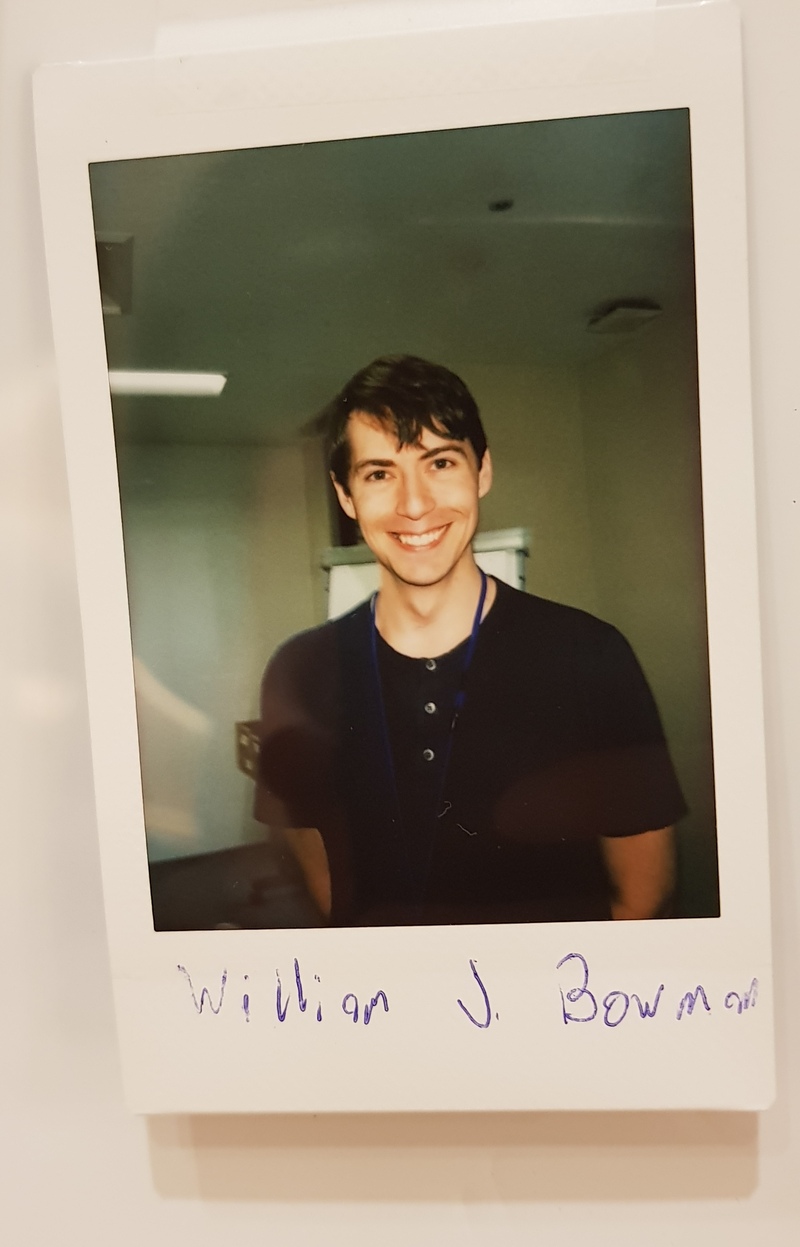 William J. Bowman